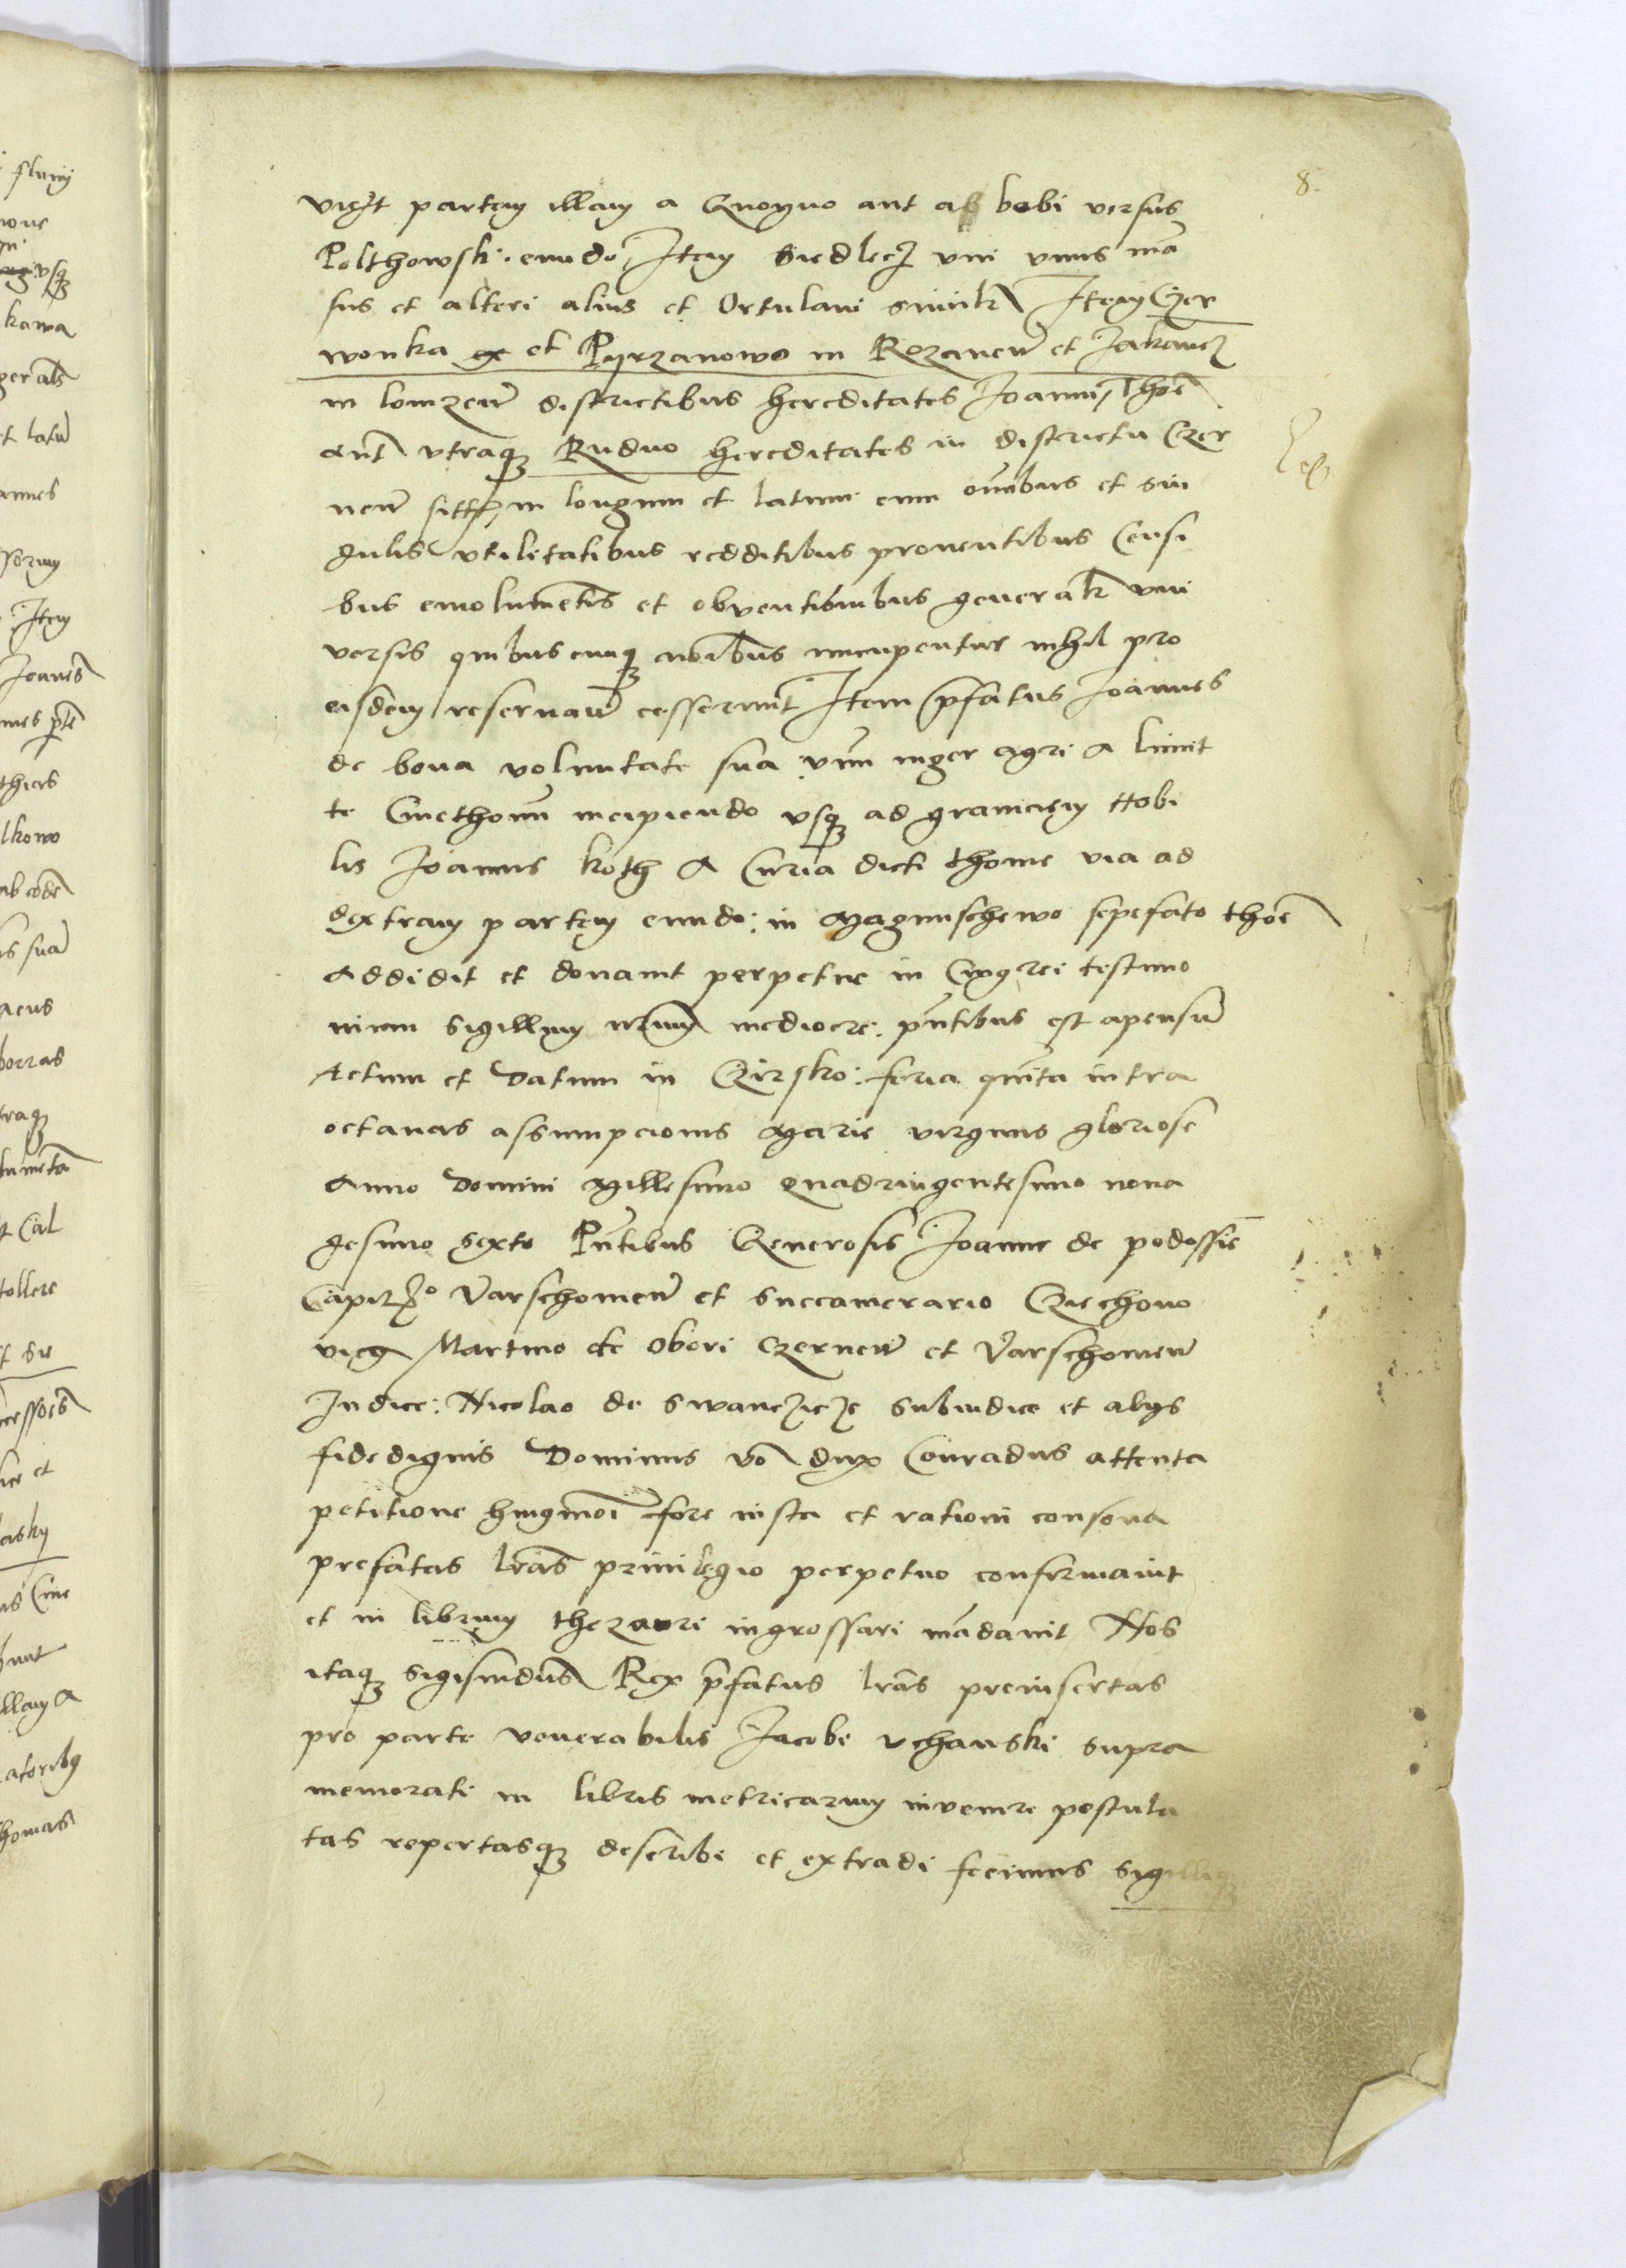 8
partem illam a Gnoyno aut ab bobi versus
Polthowski eundo, Item Siedlecz uni unus ma
sus et alteri alius et Ortulani Item Czer
wonka et Pyrzanowo in Rozanen̄ et
in lomzen̄ districtibus hereditates Joanni, Thoe
utraq̨ Rudno hereditates in districtu Czer
nen̄ in longum et latum cum om̄ibus et sin
gulis utilitatibus redditibus proventibus Censi
bus emolumētis et obventiōibus uni
versis quibuscunq̨ noīibus nuncupentur nihil pro
eisdem reservan̄ cesserunt Item p̄fatus Joannes
de bona voluntate sua unū iuger agri a limit
te Cmethonū incipiendo usq̨ ad graniciem Nobi
lis Joannis koth A Curia dicti thome via ad
dextram partem eundo: in Magnuschewo sepefato thoe
addidit et donavit perpetue in Cuius rei testimo
nium sigillum nr̄um mediocre: pn̄tibus est apensū
Actum et Datum in Czirsko: feria quīta intra
octavas assumpcionis Marie virginis gloriose
Anno Domini Millesimo Quadringentesimo nona
gesimo sexto Pn̄tibus Generosis Joanne de podossie
Varschowien̄ et Succamerario Cziechono
Martino de Obori Czernen̄ et Varschowien̄
Judice: Nicolao de Swanczicze Subiudice et alijs
fidedignis Dominus vō dux Conradus attenta
petitione huiusmoī fore iusta et rationi consona
prefatas lr̄as privilegio perpetuo confirmavit
et in librum thezauri ingrossari mādavit Nos
itaq̨ Sigismdus Rex p̄fatus lr̄as preinsertas
pro parte venerabilis Jacobi uchanski supra
memorati in libris metricarum invenire postula
tas repertasq̨ describi et extradi fecimus sigilliq̨